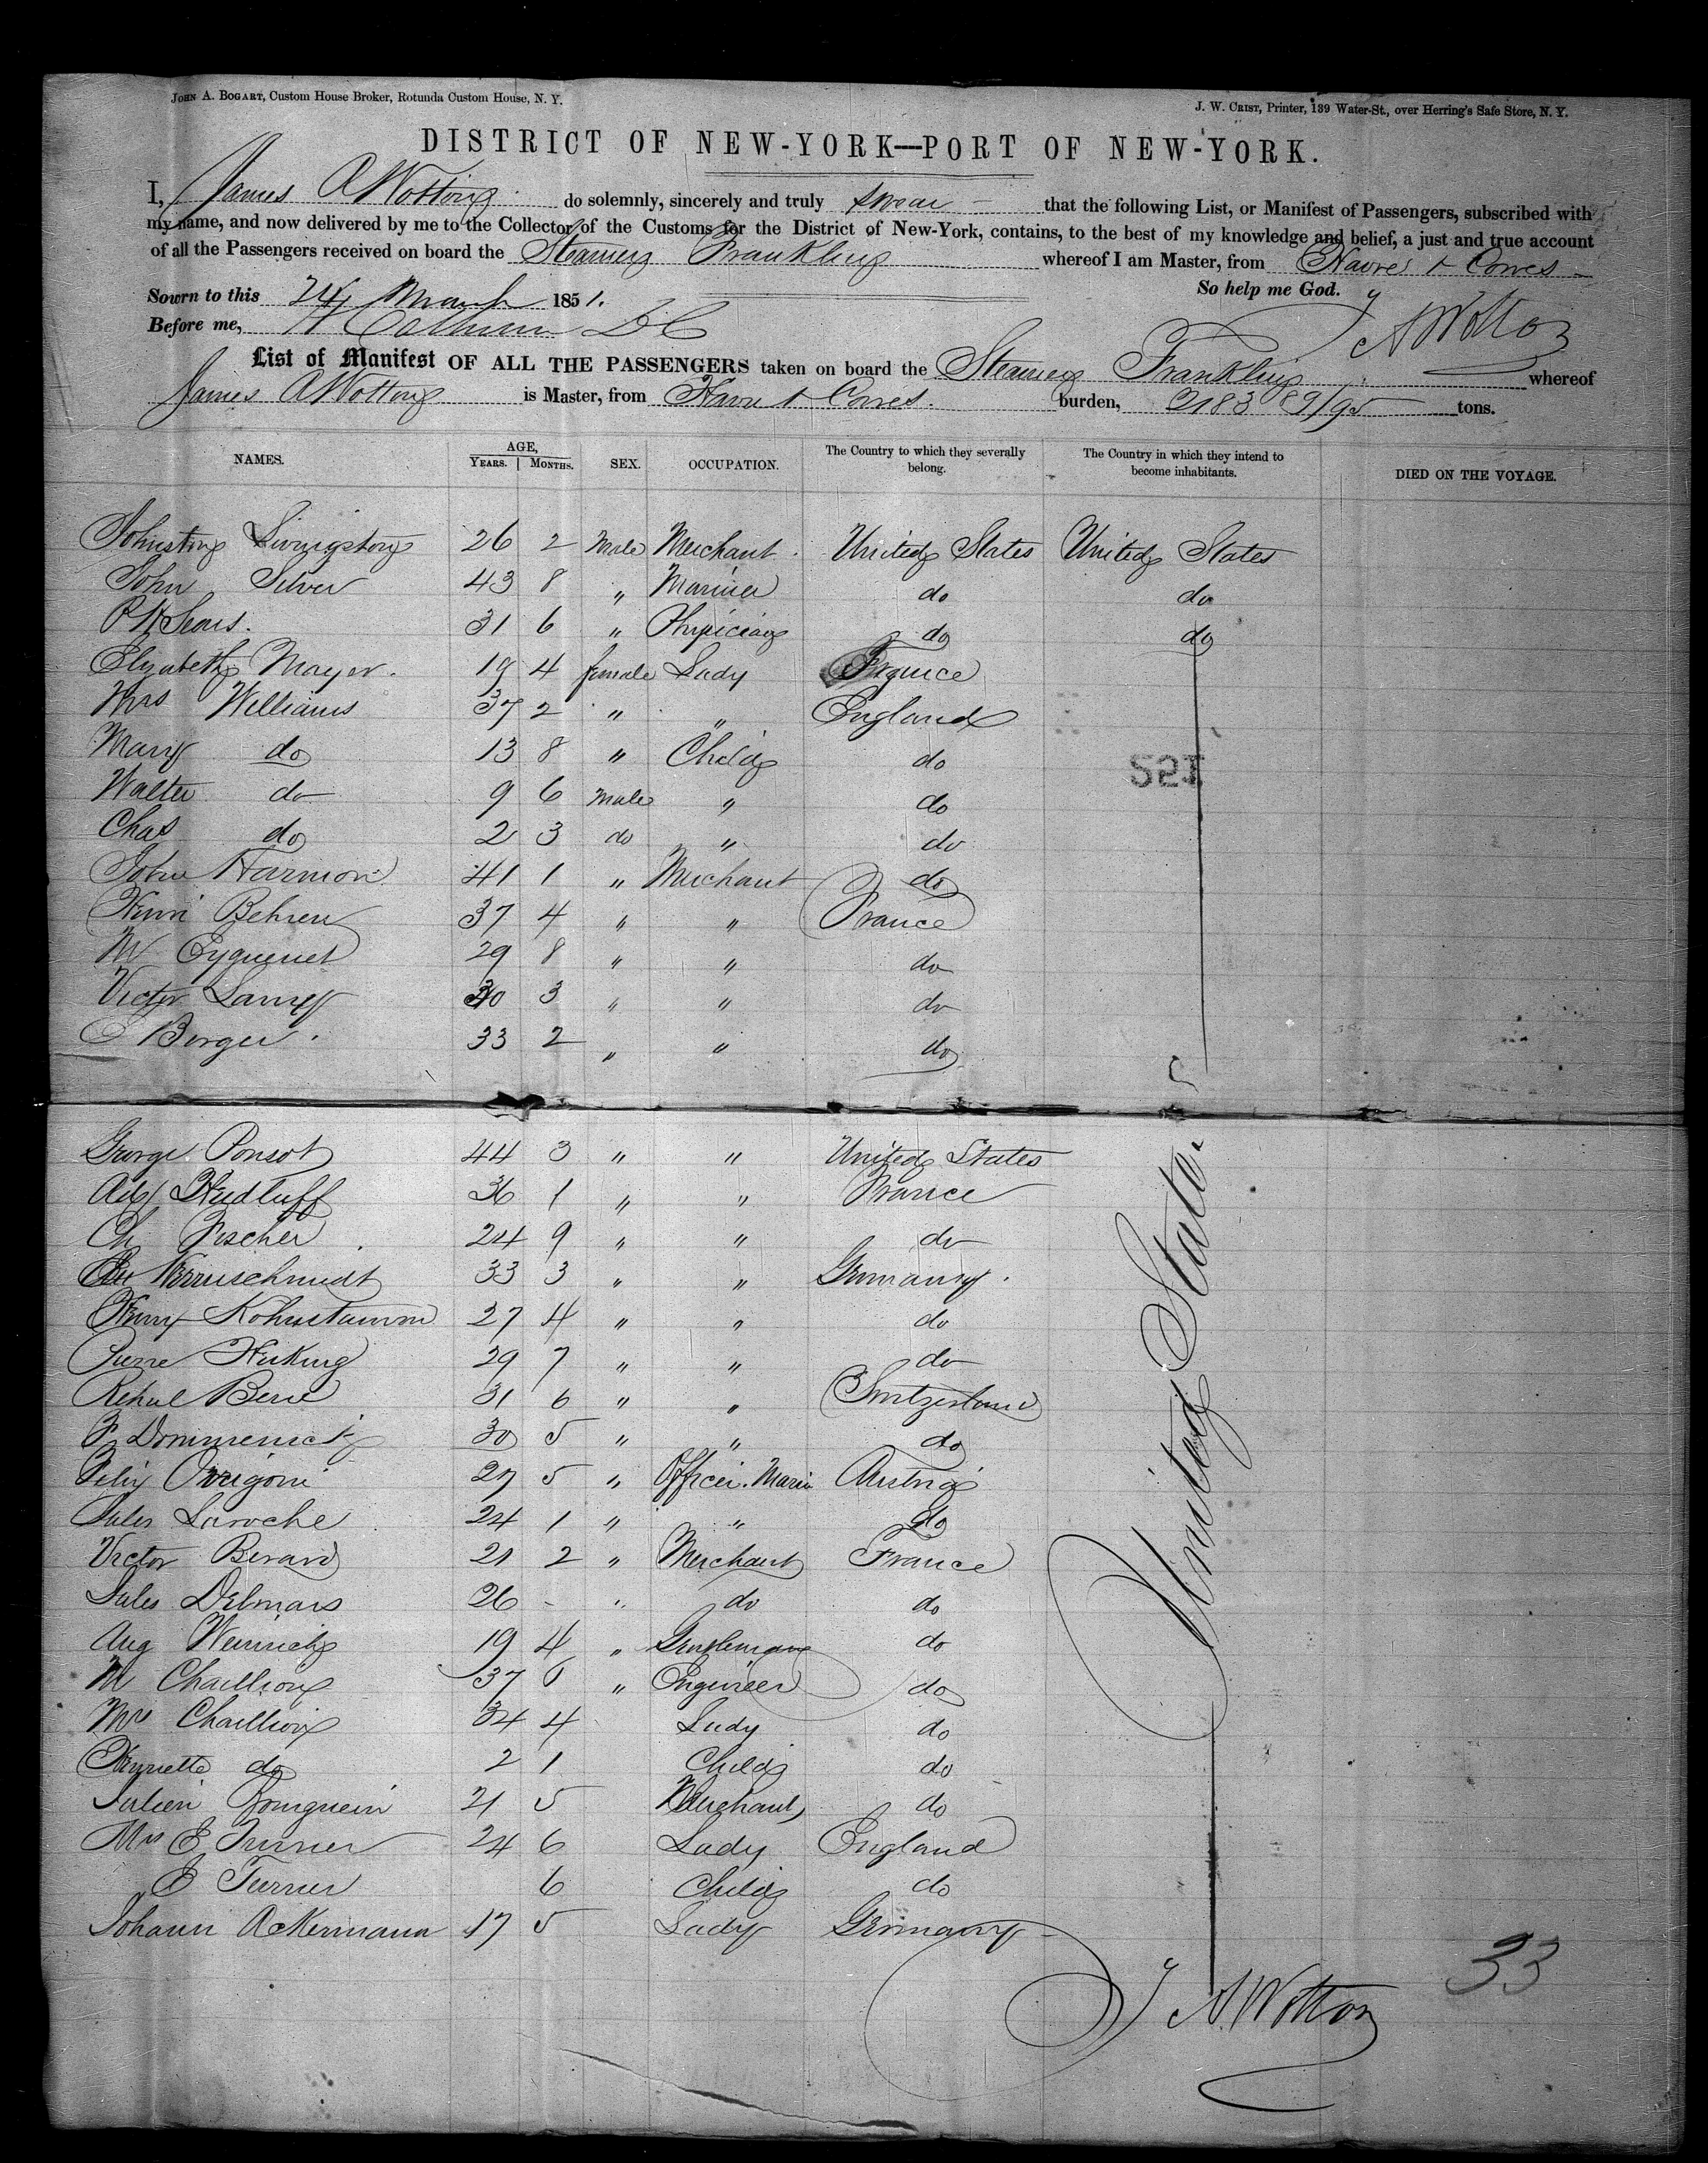 John A. Bogart, Custom House Broker, Rotunda Custom House, N. Y.
J. W. Crist, Printer, 139 Water-St., over Herring's Safe Store, N. Y.
DISTRICT OF NEW-YORK—PORT OF NEW-YORK.
I, James A Wotton do solemnly, sincerely and truly swear that the following List, or Manifest of Passengers, subscribed with
my name, and now delivered by me to the Collector of the Customs for the District of New-York, contains, to the best of my knowledge and belief, a just and true account
of all the Passengers received on board the Steamer Franklin whereof I am Master, from Havre & Cowes
So help me God.
Sworn to this 24 March 1851.
J A Wotton
Before me, Calhoun D C
List of Manifest OF ALL THE PASSENGERS taken on board the Steamer Franklin whereof
James A Wotton is Master, from Havre & Cowes. burden, 2183 89/95 tons.
NAMES. AGE, YEARS. MONTHS. SEX. OCCUPATION. The Country to which they severally belong. The Country in which they intend to become inhabitants. DIED ON THE VOYAGE.
Johnston Livingston 26 2 Male Merchant United States United States
John Silver 43 8 " Mariner do do
P H Sears. 31 6 " Physician do do
Elizabeth Mayer. 19 4 female Lady France
Mrs Williams 37 2 " " England
Mary do 13 8 " Child do
Walter do 9 6 Male " do
Chas do 2 3 do " do
John Harmon 41 1 " Merchant do
Henri Behren 37 4 " " France
M Eyquenet 29 8 " " do
Victor 30 3 " " do
Berger 33 2 " " do
George Ponsot 44 3 " " United States
Ad Heidluff 36 1 " " France
Ch Fischer 24 9 " " do
33 3 " " Germany.
Henry Kohnstamm 27 4 " " do
Pierre 29 7 " " do
31 6 " " Switzerland
F 30 5 " " do
Felix Orrigoni 27 5 " Officer. Marin Austria
Jules Laroche 24 1 " " do
Victor Berard 21 2 " Merchant France
Jules Delmars 26 - " do do
Aug Weinrich 19 4 " Gentleman do
M Chaillioux 37 6 " Engineer do
Mrs Chaillioux 34 4 Lady do
Henriette do 2 1 Child do
Julien 21 5 Merchant do
Mrs E Turner 24 6 Lady England
E Turner 6 Child do
Johann Ackermann 17 5 Lady Germany
United States
152
33
J A. Wotton